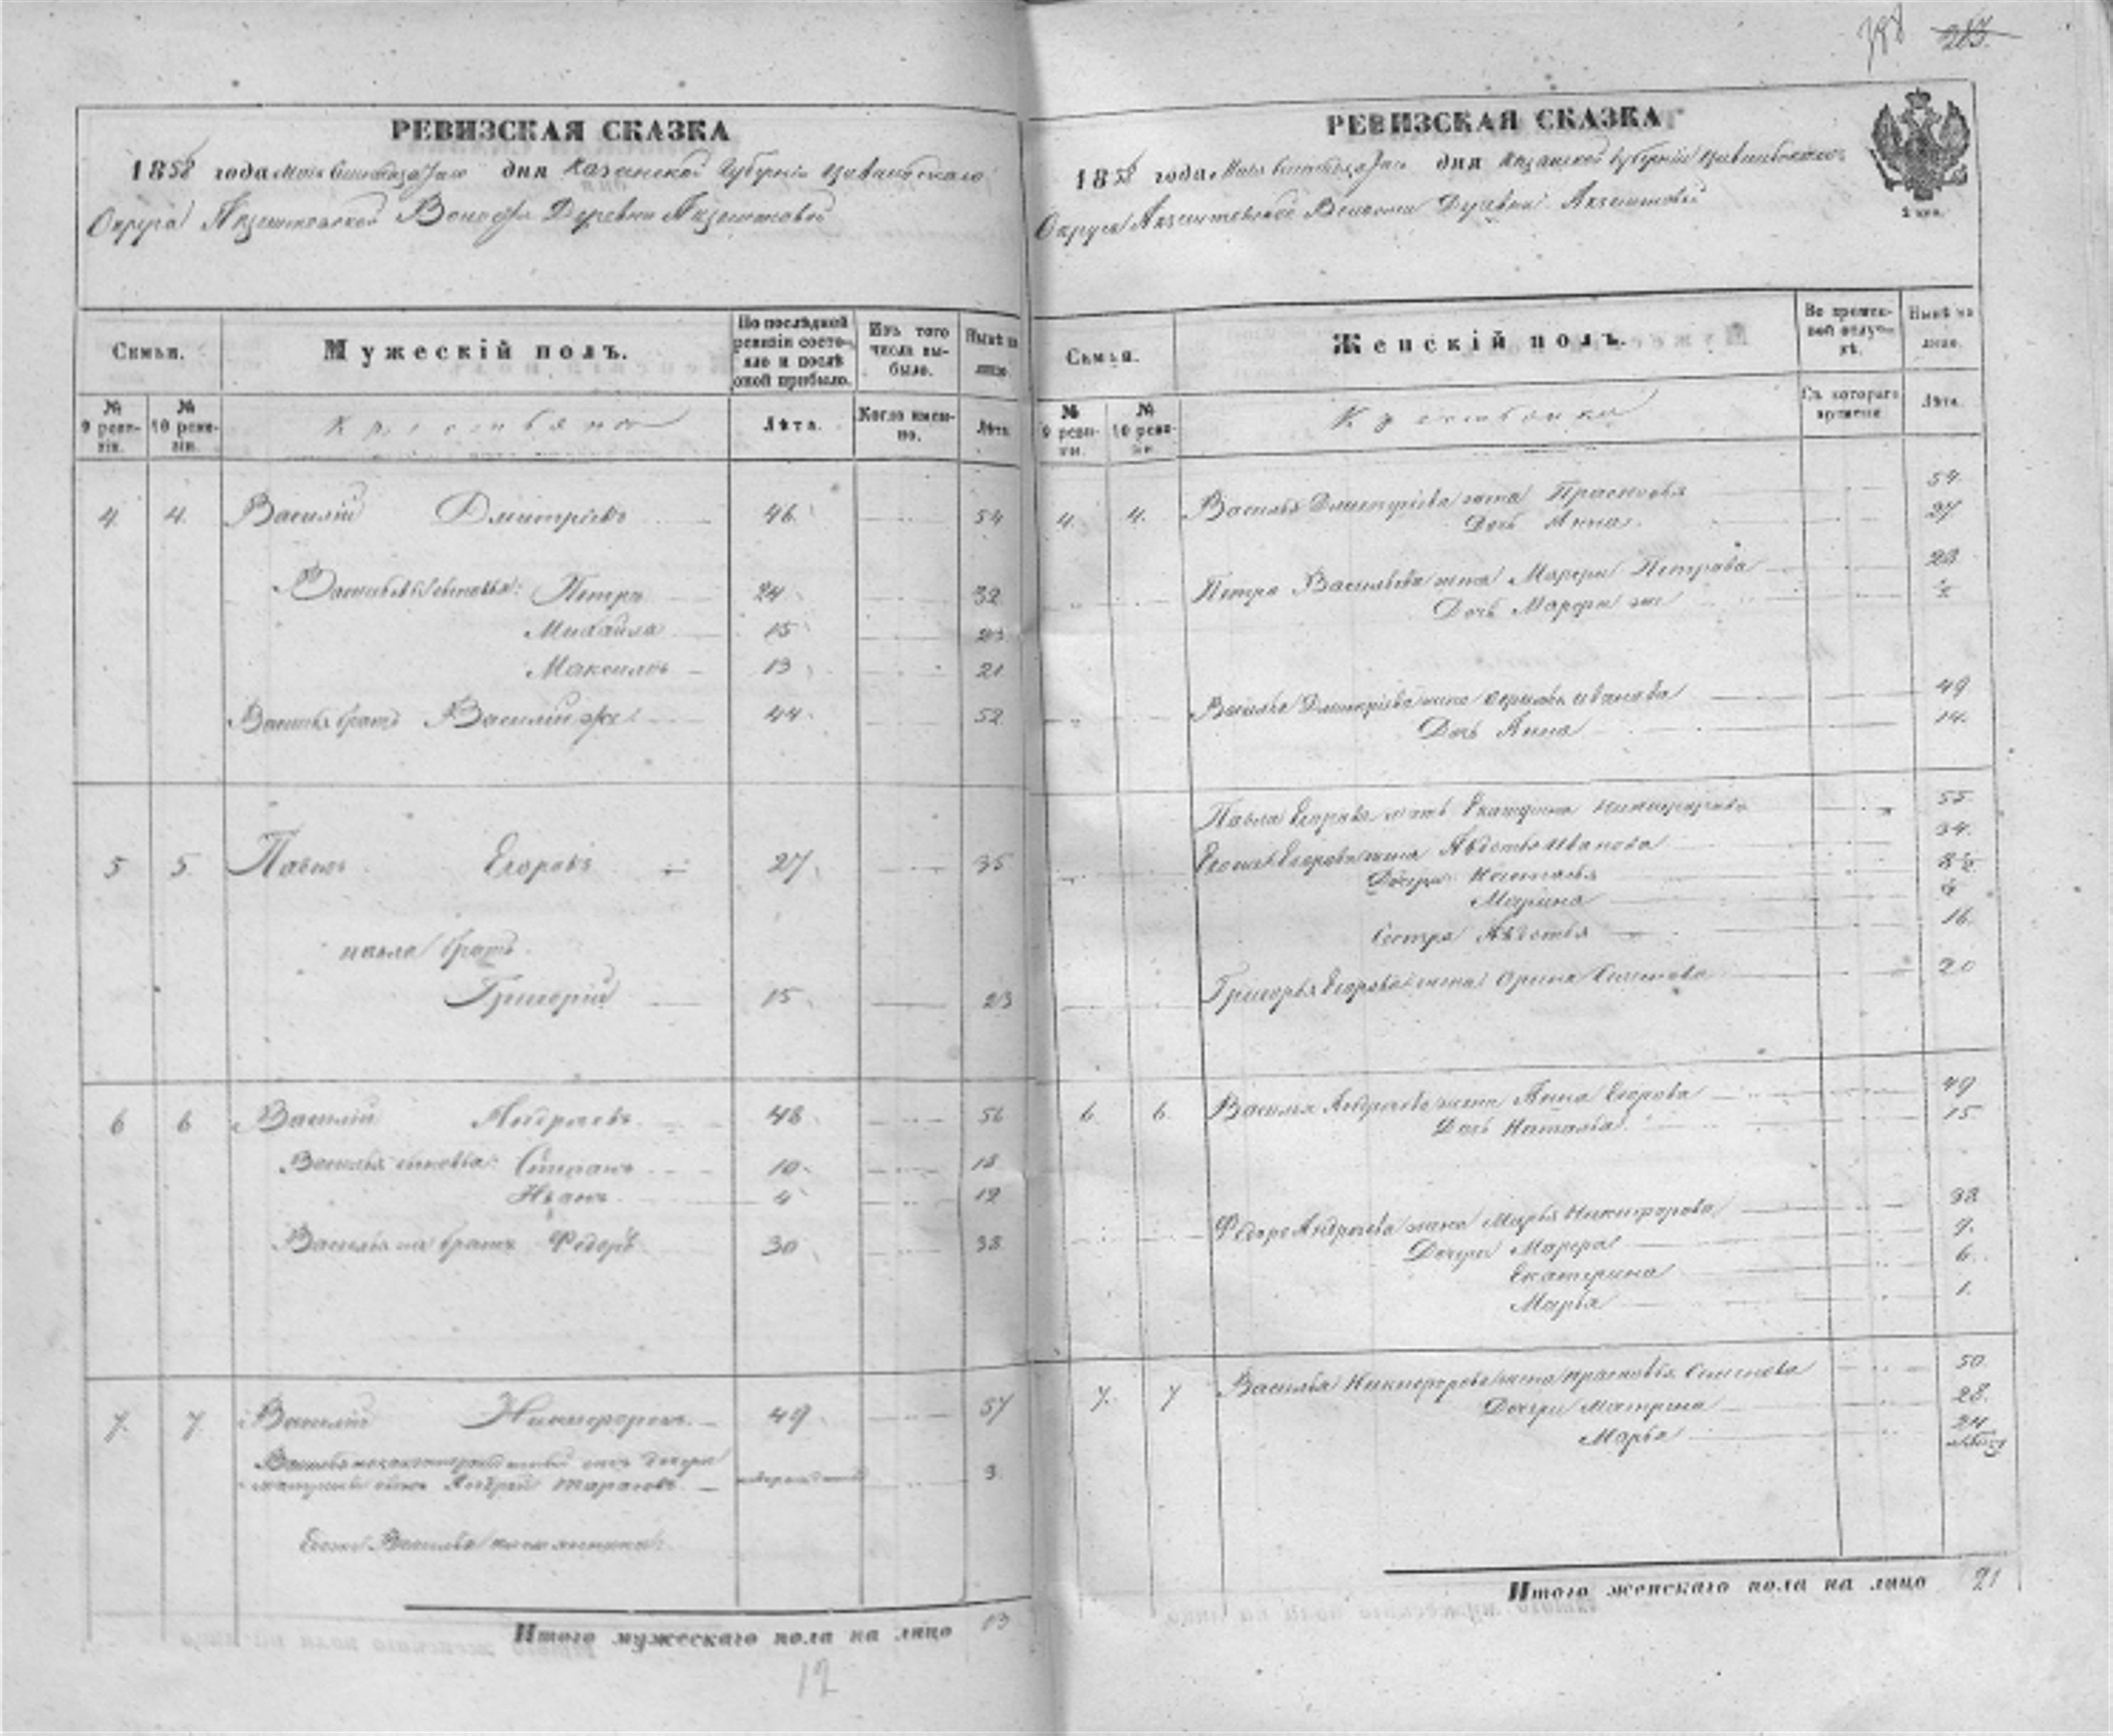 398 283.
РЕВИЗСКАЯ СКАЗКА
1858 года Мая дня Казанской Губернiи Цивильскаго
Округа Волости Деревни
Семьи.
Мужескiй полъ.
По послѣдней ревизiи состояло и послѣ оной прибыло.
Изъ того числа выбыло.
Нынѣ на лицо.
№ 9 ревизiи.
№ 10 ревизiи.
Крестьяне
Лѣта.
Когда именно.
Лѣта.
4. 4. Василiй Дмитрiевъ 46. 54
Васильевы сыновья: Петръ 24. 32
Михайла 15 23
Максимъ 13 21
Василья братъ Василiй же 44. 52
5 5. Павелъ Егоровъ 27. 35
Павла братъ
Григорiй 15. 23
6 6 Василiй Андреевъ 48. 56
Василья сыновья: Степанъ 10. 18
Иванъ 4 12
Василья братъ Федоръ 30 38
7. 7. Василiй Никифоровъ 49. 57
сынъ Андрей Тарасовъ 3.
Итого мужескаго пола на лицо 13
12
РЕВИЗСКАЯ СКАЗКА
1858 года Мая дня Казанской Губернiи Цивильскаго
Округа Волости Деревни
Семьи.
Женскiй полъ.
Во временной отлучкѣ.
Нынѣ на лицо.
№ 9 ревизiи.
№ 10 ревизiи.
Крестьянки
Съ котораго времени
Лѣта.
4. 4. Василья Дмитрiева жена Прасковья 54.
Дочь Анна 27
Петра Васильева жена Марфа Петрова 28
Дочь Марфа же ½
Василья Дмитрiева жена Иванова 49
Дочь Анна 14.
Павла Егорова мать Екатерина Никифорова 55
Егорова жена Авдотья Иванова 34.
Дочери Наталья 8½
Марина
Сестра Авдотья 16.
Григорья Егорова жена Орина Семенова 20
6. 6. Василья Андреева жена Анна Егорова 49
Дочь Наталья 15
Федора Андреева жена Марья Никифорова 38
Дочери Марфа 9.
Екатерина 6.
Марья 1.
7. 7 Василья Никифорова жена Прасковья Семенова 50.
Дочери Матрена 28.
Марья 24
Итого женскаго пола на лицо 21